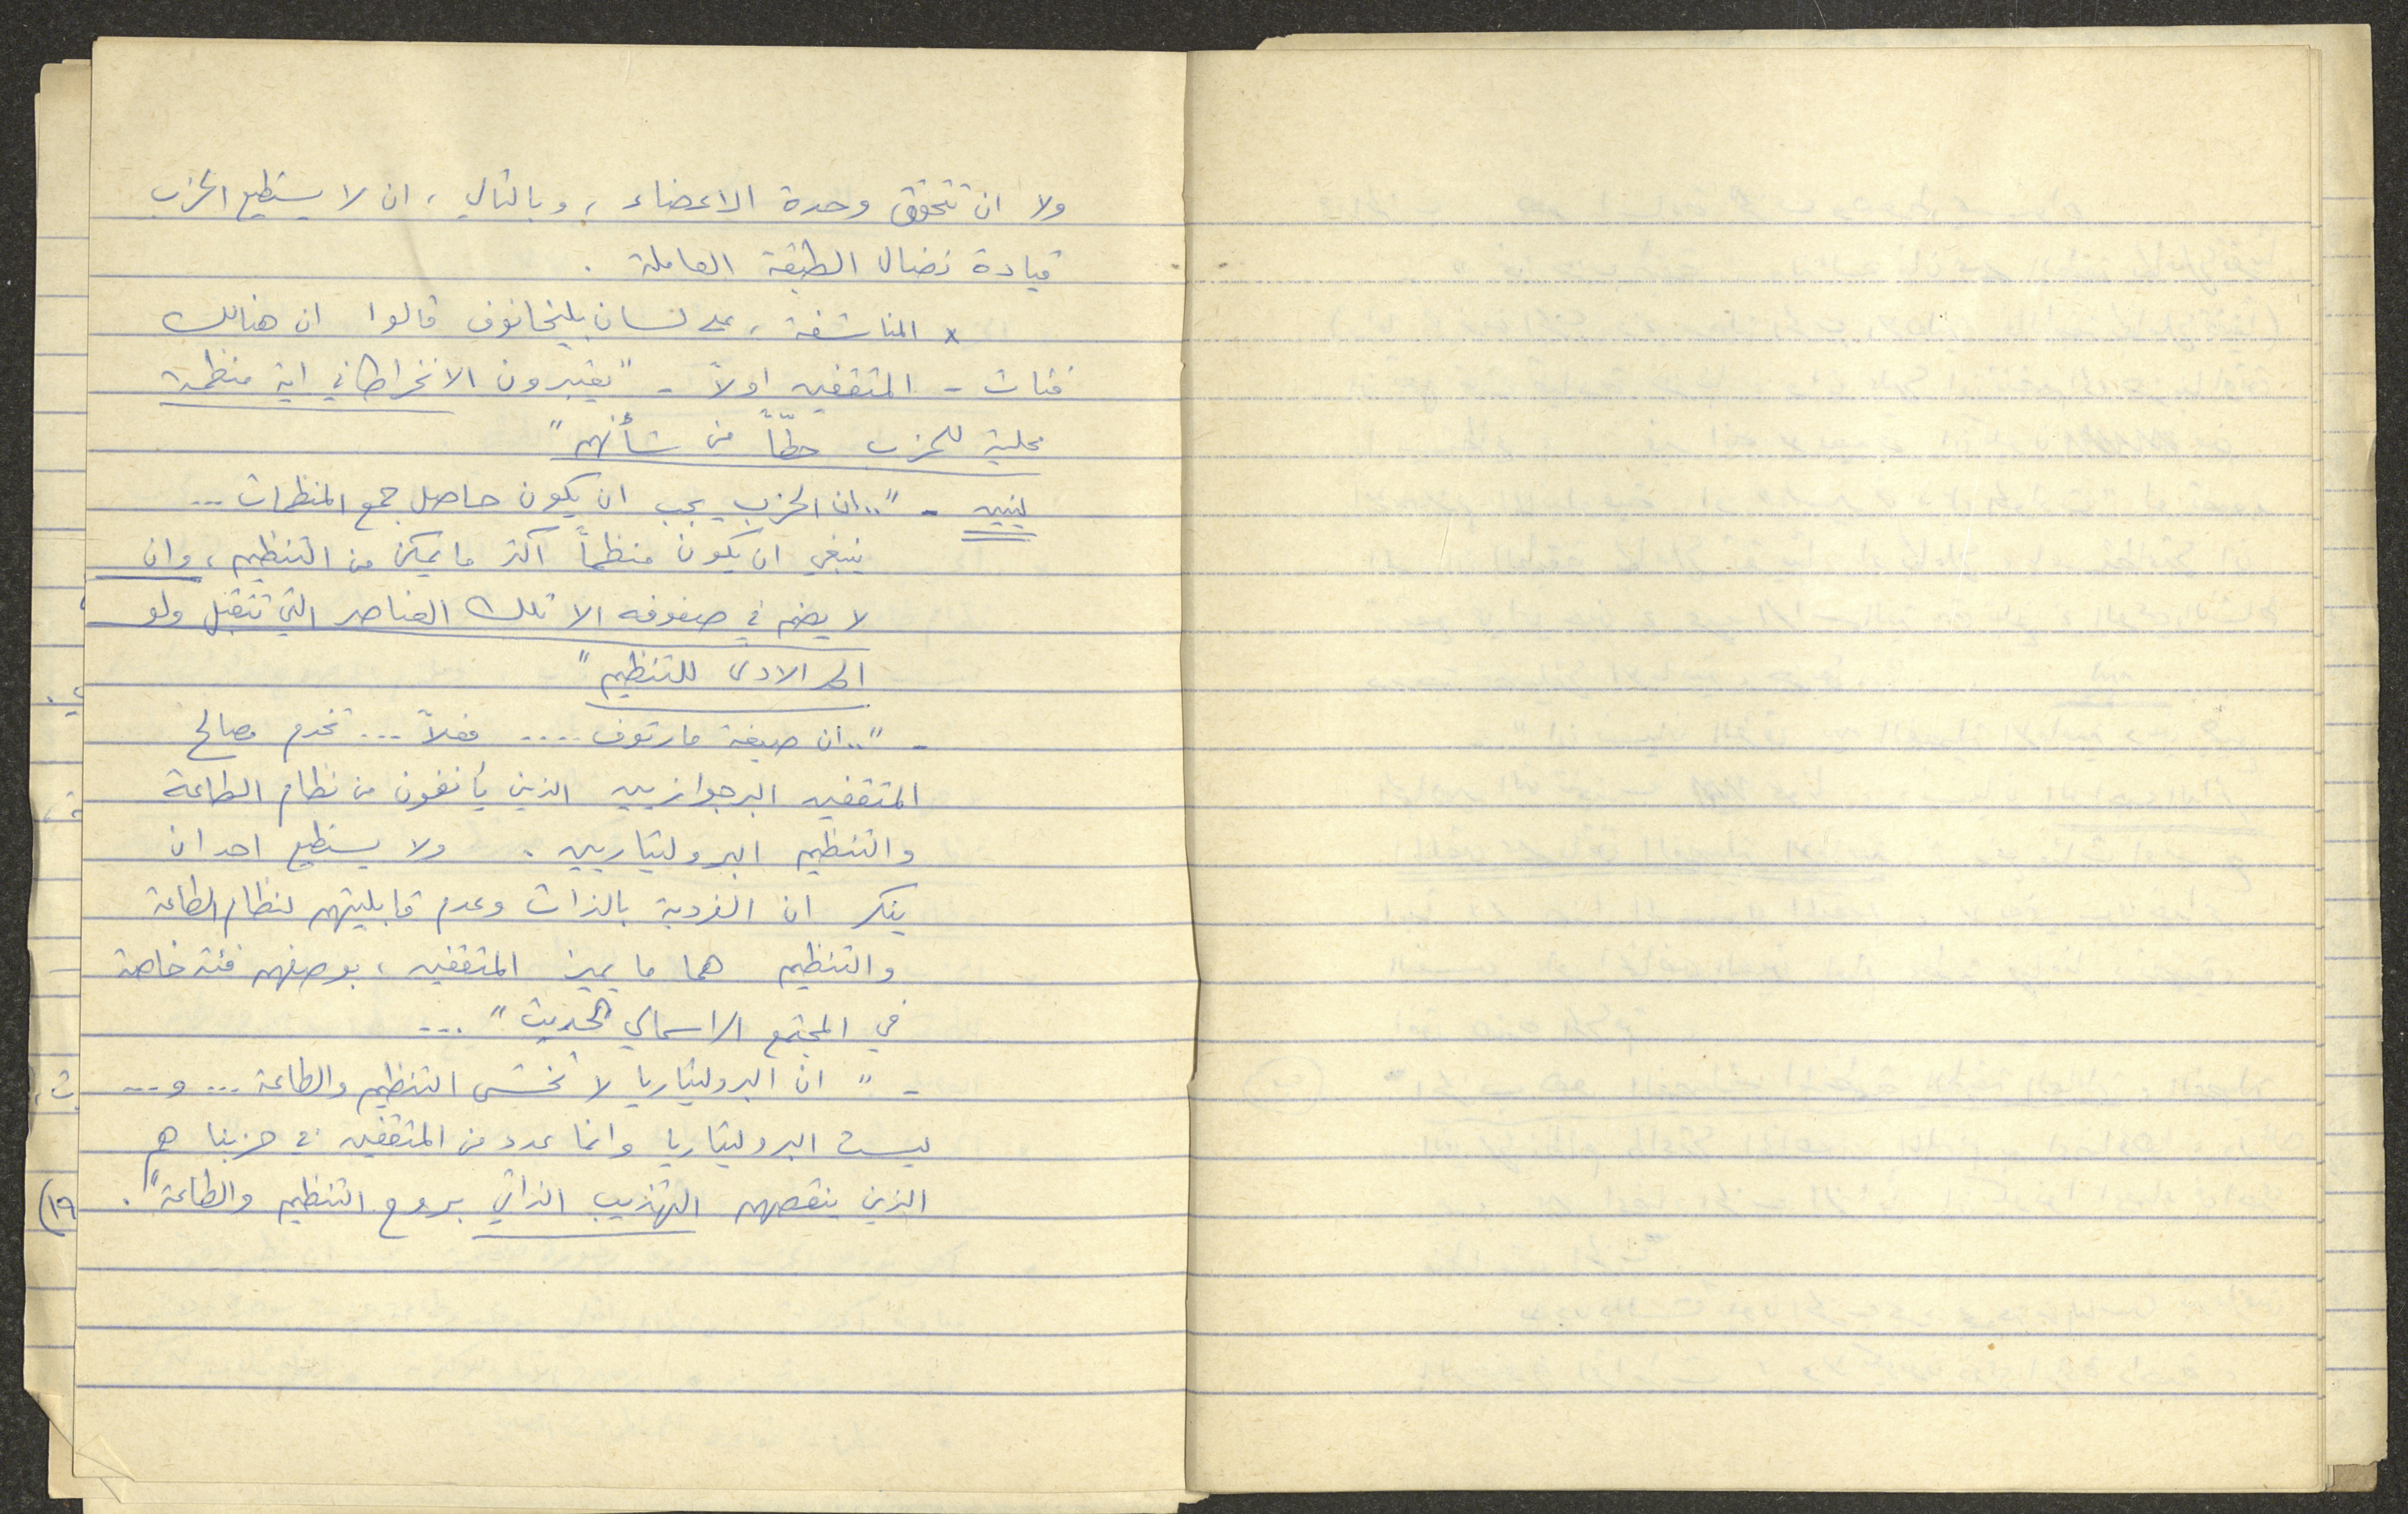 ولا ان تتحقق وحدة الاعضاء ، وبالتالي ، ان لا يستطيع الحزب
قيادة نضال الطبقة العاملة .
x المناشفة ، على لسان بليخانوف قالوا ان هنالك
فئات - المثقفين اولاً - " يعتبرون الانخراط في اية منظمة
محلية للحزب حطّاً من شأنهم "
لينين - " .. ان الحزب يجب ان يكون حاصل جمع المنظمات ...
ينبغي ان يكون منظماً اكثر ما يمكن من التنظيم ، وان
لا يضم في صفوفه الا تلك العناصر التي تتقبل ولو
الحد الادنى للتنظيم "
- " .. ان صيغة مارتوف .... فعلاً ... تخدم مصالح
المثقفين البرجوازيين الذين يأنفون من نظام الطاعة
والتنظيم البروليتاريين . ولا يستطيع احد ان
ينكر ان الفردية بالذات وعدم قابليتهم لنظام الطاعة
والتنظيم هما ما يميز المثقفين ، بوصفهم فئة خاصة
في المجتمع الراسمالي الحديث " ...
- " ان البروليتاريا لا تخشى التنظيم والطاعة ... و ...
ليست البروليتاريا وانما عدد من المثقفين في حزبنا هم
الذين ينقصهم التهذيب الذاتي بروح التنظيم والطاعة " .
١٩)